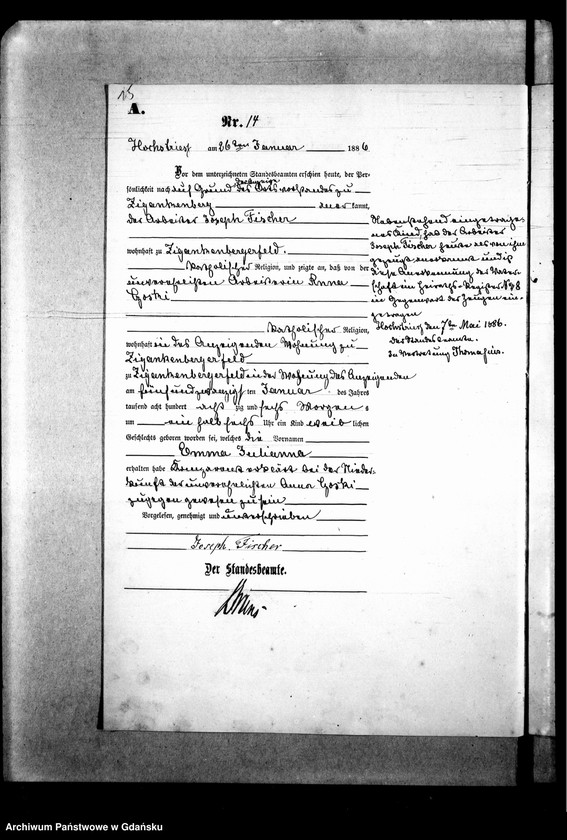 15
A.
Nr. 14
Hochstrieß am 26ten Januar 1886
Vor dem unterzeichneten Standesbeamten erschien heute, der Per-
sönlichkeit nach auf Grund der Anzeige des Ortsvorstandes zu
Zigankenberg aner kannt,
der Arbeiter Joseph Fischer
wohnhaft zu Zigankenbergerfeld.
katholischer Religion, und zeigte an, daß von der
unverehelichten Arbeiterin Anna
Goski
katholischer Religion,
wohnhaft in des Anzeigenden Wohnung zu
Zigankenbergerfeld
zu Zigankenbergerfeld in der Wohnung des Anzeigenden
am fünfundzwanzigsten Januar des Jahres
tausend acht hundert acht zig und sechs Morgens
um ein halb sechs Uhr ein Kind weib lichen
Geschlechts geboren worden sei, welches die Vornamen
Emma Julianna
erhalten habe Komparent erklärt bei der Nieder-
kunft der unverehelichten Anna Goski
zugegen gewesen zu sein
Vorgelesen, genehmigt und unterschrieben
Joseph. Fischer
Der Standesbeamte.
Nebenstehend eingetrage-
nes Kind hat der Arbeiter
Joseph Fischer heute als von ihm
gezeugt anerkannt und ist
diese Anerkennung der Vater-
schaft im Heiraths-Register No 8
in Gegenwart der Zeugen ein-
getragen
den 7ten Mai 1886.
Der Standesbeamte.
In Vertretung
Archiwum Państwowe w Gdańsku